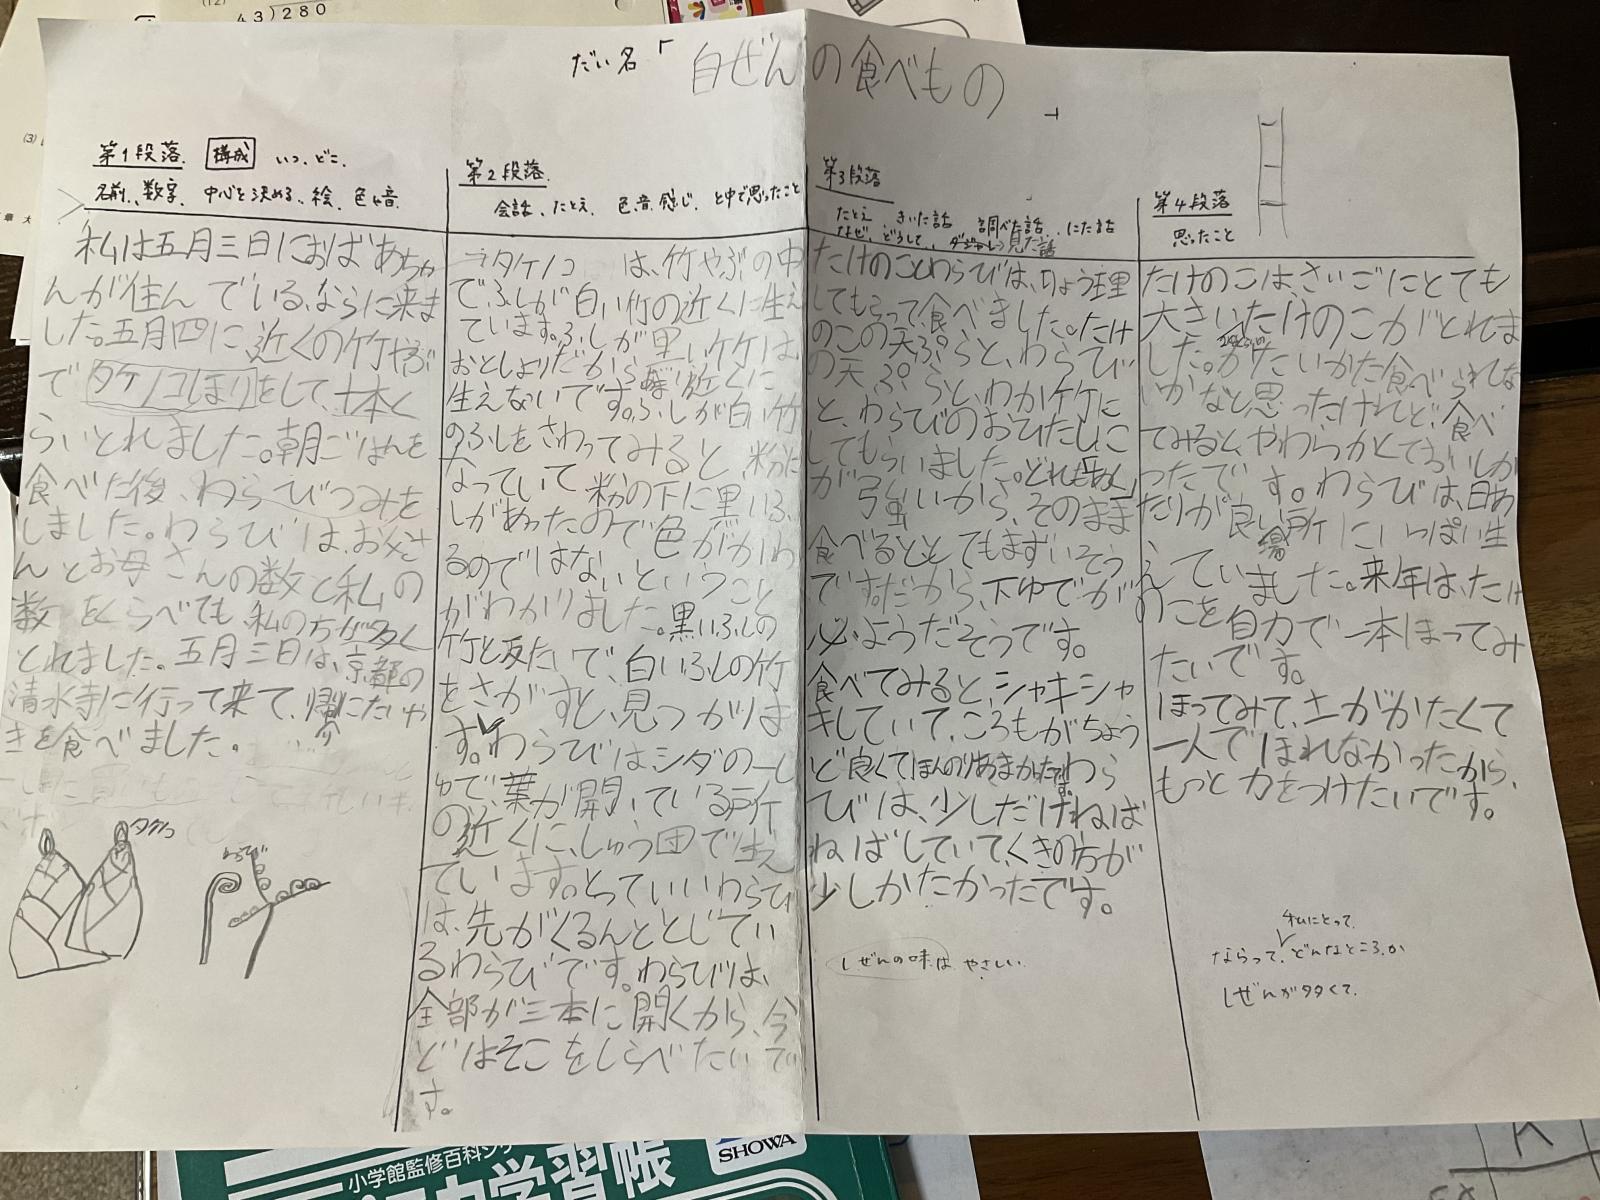 (12)
43)280
(3)
だい名「自ぜんの食べもの」
第1段落 構成 いつ、どこ、
名前、数字、中心を決める、絵、色や音
私は五月三日におばあちゃ
んが住んでいる、ならに来ま
した。五月四に近くの竹やぶ
でタケノコほりをして、十本く
らいとれました。朝ごはんを
食べた後、わらびつみを
しました。わらびは、お父さ
んとお母さんの数と私の
数をくらべても、私の方が多く
とれました。五月三日は、京都の
清水寺に行って来て、帰りにたいや
きを食べました。
タケノコ
わらび
第2段落
会話、たとえ、色、音、感じ、と中で思ったこと
タケノコは、竹やぶの中
で、ふしが白い竹の近くに生え
ています。ふしが黒い竹は
おとしよりだから近くに
生えないです。ふしが白い竹
のふしをさわってみると、粉に
なっていて粉の下に黒いふ
しがあったので色がかわ
るのではないということ
がわかりました。黒いふしの
竹と反たいで、白いふしの竹
をさがすと、見つかりま
す。わらびはシダの一しゅ
で、葉が開いている所
の近くに、しゅう団で生え
ています。とっていいわらび
は、先がくるんととじてい
るわらびです。わらびは、
全部が三本に開くから、今
どはそこをしらべたいで
す。
第3段落
たとえ きいた話 調べた話 にた話
なぜ、どうして、ダジャレ 見た話
たけのことわらびは、りょう理
してもらって、食べました。たけ
のこの天ぷらと、わらび
の天ぷらと、わか竹に
と、わらびのおひたしに
してもらいました。どれも
が強いから、そのまま
食べるととてもまずいそう
です。だから、下ゆでが
必ようだそうです。
食べてみると、シャキシャ
キしていて、ころもがちょう
ど良くてほんのりあまかったです。わら
びは、少しだけねば
ねばしていて、くきの方が
少しかたかったです。
しぜんの味は やさしい
第4段落
思ったこと
たけのこは、さいごにとても
大きいたけのこがとれま
した。かたいかた食べられしな
いかなと思ったけれど、食べ
てみると、やわらかくておいしか
ったです。わらびは、日あ
たりが良い場所にいっぱい生
えていました。来年は、たけ
のこを自力で一本ほってみ
たいです。
ほってみて、土がかたくて
一人でほれなかったから、
もっと力をつけたいです。
私にとって、
ならって、どんなところか
しぜんが多くて、
小学館監修百科シリーズ
学習帳
SHOWA